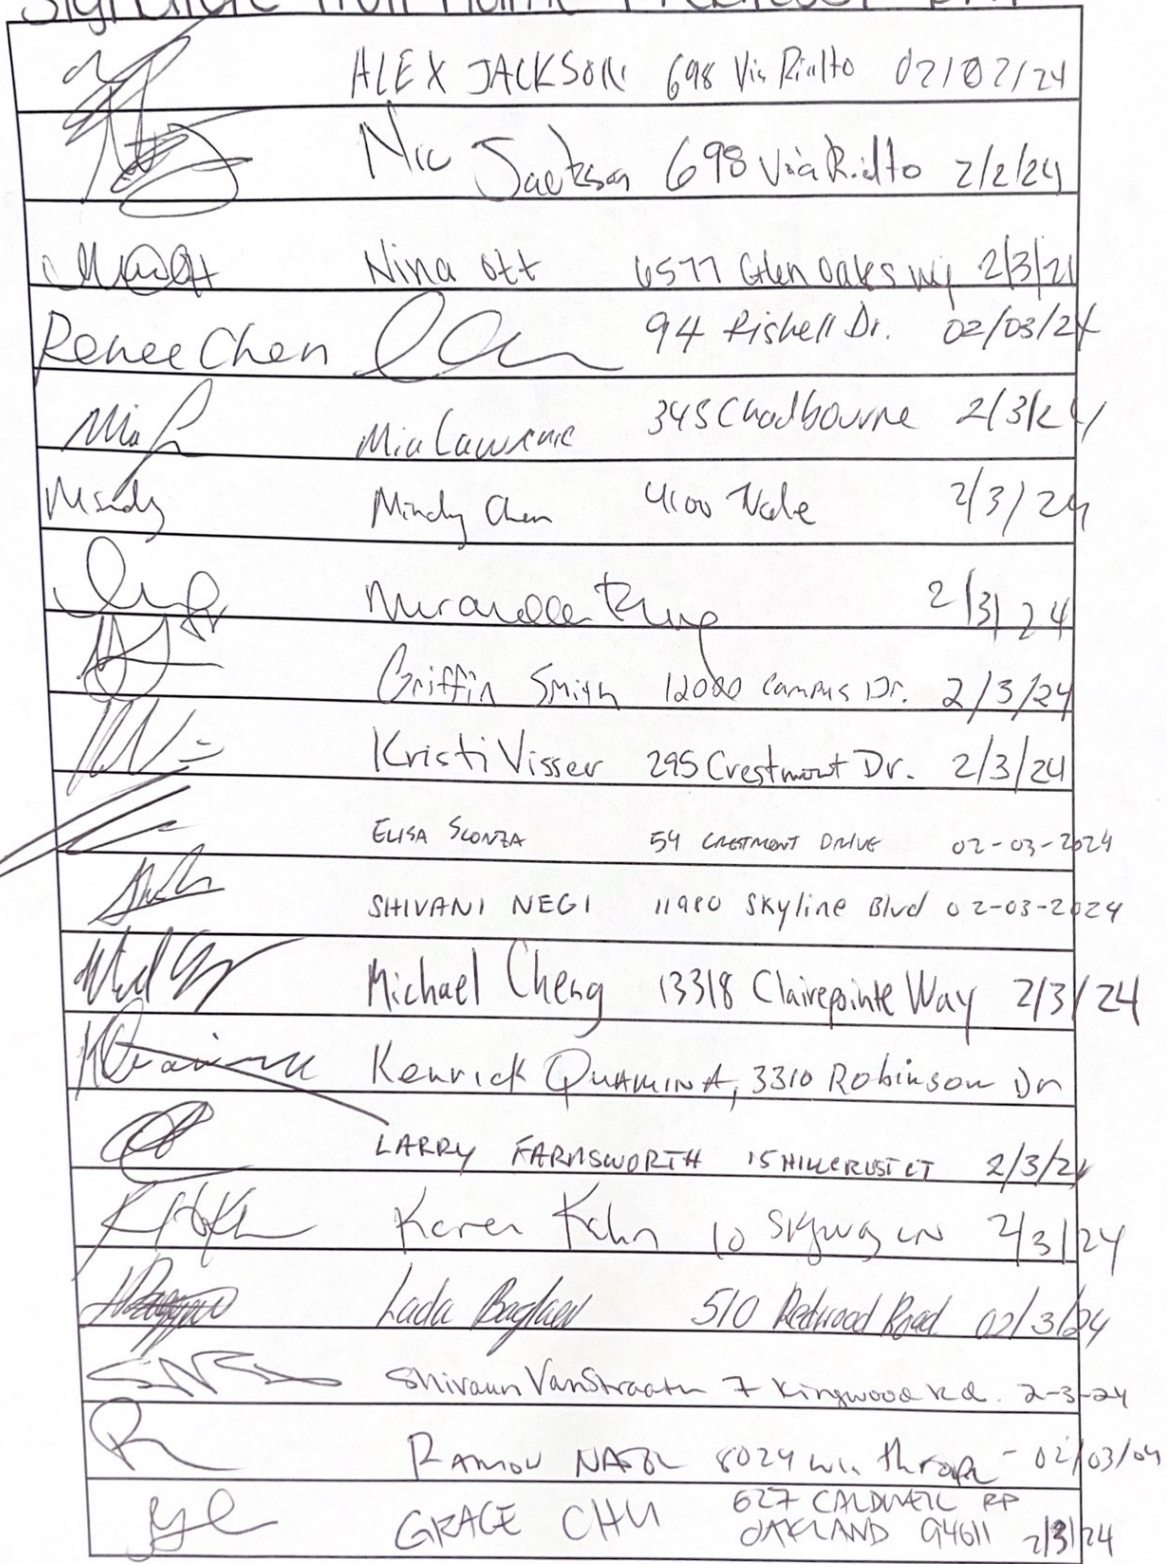 ALEX JACKSON 698 Via Rialto 02/02/24
Nic Jackson 698 Via Rialto 2/2/24
Nina Ott 6577 Glen Oaks Wy 2/3/24
Renee Chen 94 Rishell Dr. 02/03/24
Mia Mia Lawrence 345 Chadbourne 2/3/24
Mindy Mindy Chen 4100 2/3/24
2/3/24
Griffin Smith 12000 Campus Dr. 2/3/24
Kristi Visser 295 Crestmont Dr. 2/3/24
ELISA SCONZA 54 CRESTMONT DRIVE 02-03-2024
SHIVANI NEGI 11980 Skyline Blvd 02-03-2024
Michael Cheng 13318 Clairepointe Way 2/3/24
Kenrick QUAMINA, 3310 Robinson Dr
LARRY FARNSWORTH 15 HILLCREST CT 2/3/24
Karen Kahn 10 Skyway LN 2/3/24
Lada 510 Redwood Road 02/3/24
Shivaun VanStraaten 7 Kingwood Rd. 2-3-24
RAMON 8024 Winthrope - 02/03/04
GRACE CHU 627 CALDWELL RD
OAKLAND 94611 2/3/24